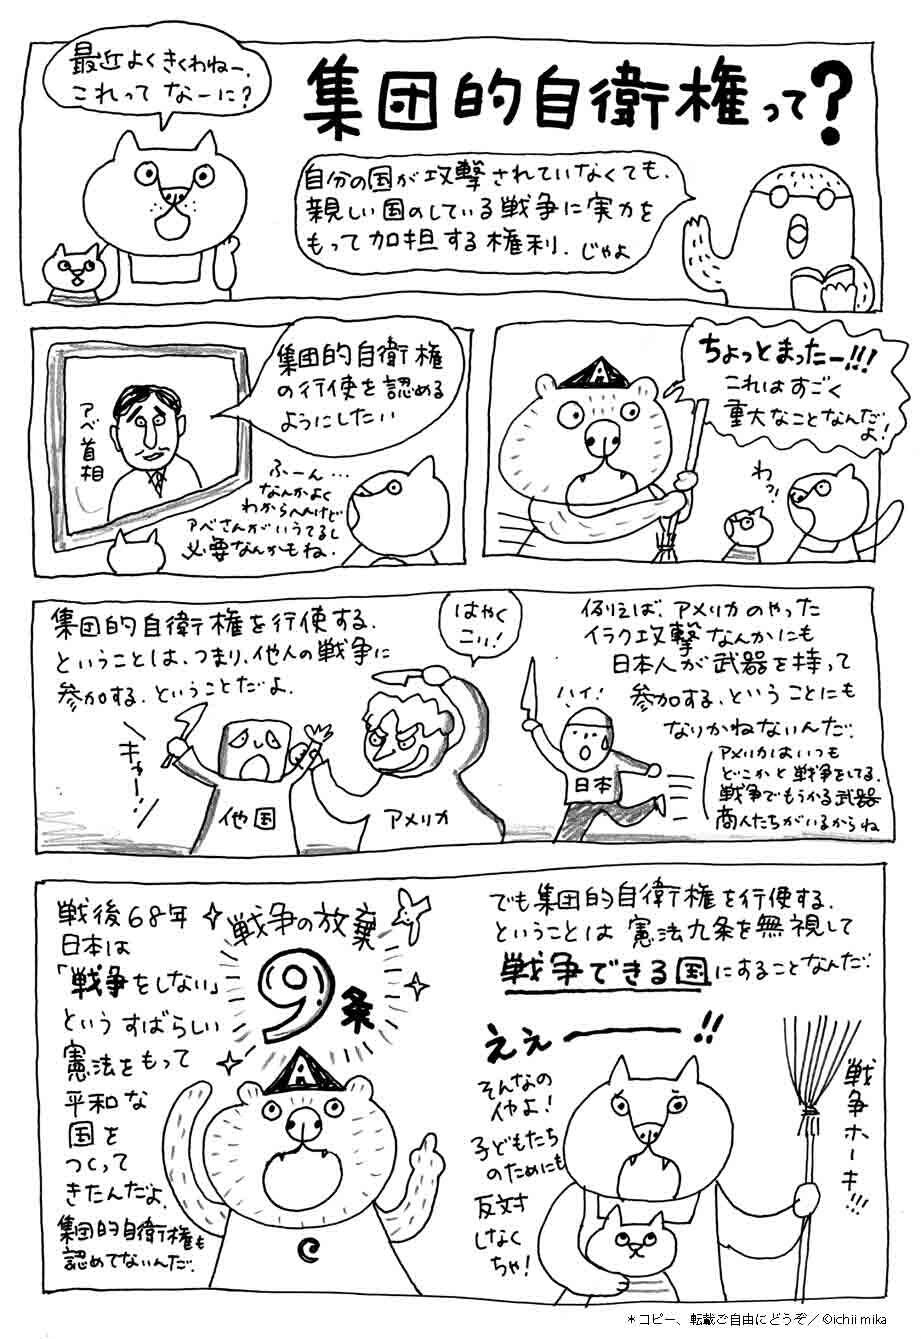 最近よくきくわねー、
これって なーに?
集団的自衛権って?
自分の国が攻撃されていなくても、
親しい国のしている戦争に実力を
もって加担する権利、じゃよ
アベ首相
集団的自衛権
の行使を認める
ようにしたい
ふーん…
なんかよく
わからへんけど
アベさんがいうてるし
必要なんかもね.
ちょっとまったー!!!
これはすごく
重大なことなんだ
よ!
わっ!
集団的自衛権を行使する、
ということは、つまり、他人の戦争に
参加する、ということだよ.
はやく
こい!
例えば、アメリカのやった
イラク攻撃なんかにも
日本人が武器を持って
参加する、ということにも
なりかねないんだ.
キャー!
他国
アメリカ
ハイ!
日本
アメリカはいつも
どこかと戦争をしてる.
戦争でもうかる武器
商人たちがいるからね
戦後68年
日本は
「戦争をしない」
という すばらしい
憲法をもって
平和な
国を
つくって
きたんだよ.
集団的自衛権も
認めてないんだ.
戦争の放棄
9条
でも集団的自衛権を行使する、
ということは 憲法九条を無視して
戦争できる国にすることなんだ.
ええーー!!
そんなの
イヤよ!
子どもたち
のためにも
反対
しなく
ちゃ!
戦争ホーキ!!!
*コピー、転載ご自由にどうぞ/©ichii mika